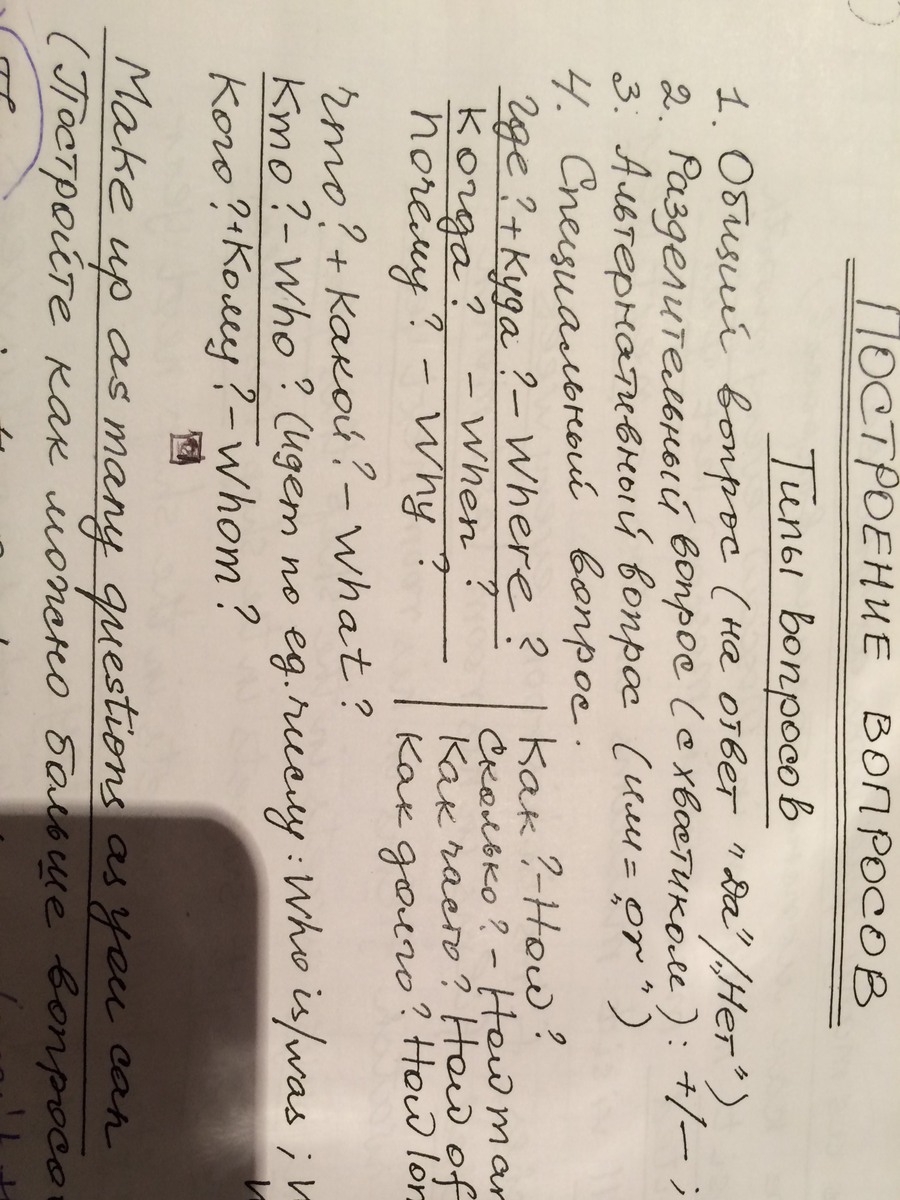 ПОСТРОЕНИЕ ВОПРОСОВ
Типы вопросов
1. Общий вопрос (на ответ "Да"/"Нет")
2. Разделительный вопрос (с хвостиком): +/— ;
3. Альтернативный вопрос (или = "or")
4. Специальный вопрос.
Где? + Куда? – Where?
Когда? – When?
Почему? – Why?
Как? – How?
Сколько? – How man
Как часто? How of
Как долго? How lon
Что? + Какой? – What?
Кто? – Who? (идет по ед. числу: Who is/was ;
Кого? + Кому? – Whom?
Make up as many questions as you can
(Постройте как можно больше вопросо